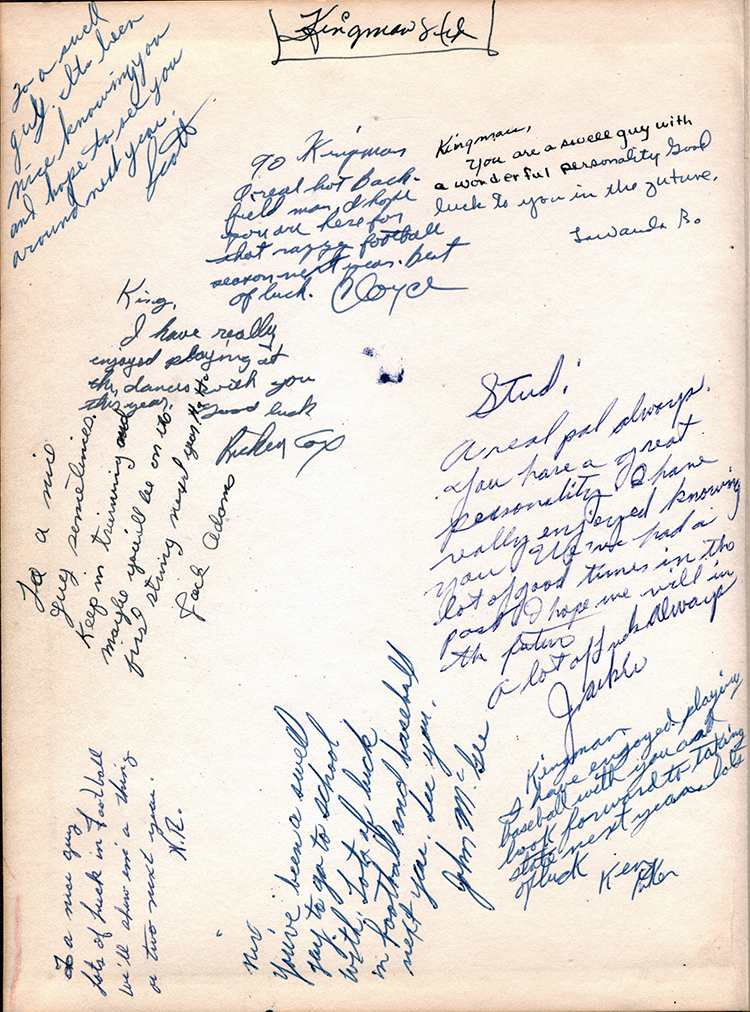 Kingman
To a swell
guy. Its been
nice knowing you
and hope to see you
around next year.
Scott
TO Kingman
A real hot Back-
field man, I hope
you are here for
that football
season next year. Best
of luck. Cloyce
Kingman,
You are a swell guy with
a wonderful personality Good
luck to you in the future.
Lawanda B.
King,
I have really
enjoyed playing at
the dances with you
this year. Good luck
Rickey Cox
To a nice
guy sometimes.
Keep in training and
maybe you'll be on the
first string next year Ha Ha
Jack Adams
Stud:
A real pal always.
You have a great
personality. I have
really enjoyed knowing
you. We've had a
lot of good times in the
past I hope we will in
the future
a lot of luck Always
Jackie
Kingman
I have enjoyed playing
baseball with you and
look forward to taking
state next year. Lots
of luck Ken
To a nice guy
Lots of luck in football
we'll show em a thing
or two next year.
N.R.
You've been a swell
guy to go to school
with. Lots of luck
in football and baseball
next year. See you.
John McGee